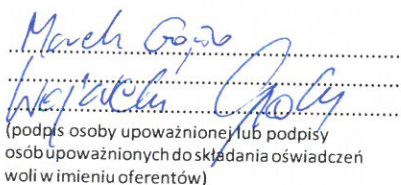 Marek
(podpis osoby upoważnionej lub podpisy
osób upoważnionych do składania oświadczeń
woli w imieniu oferentów)